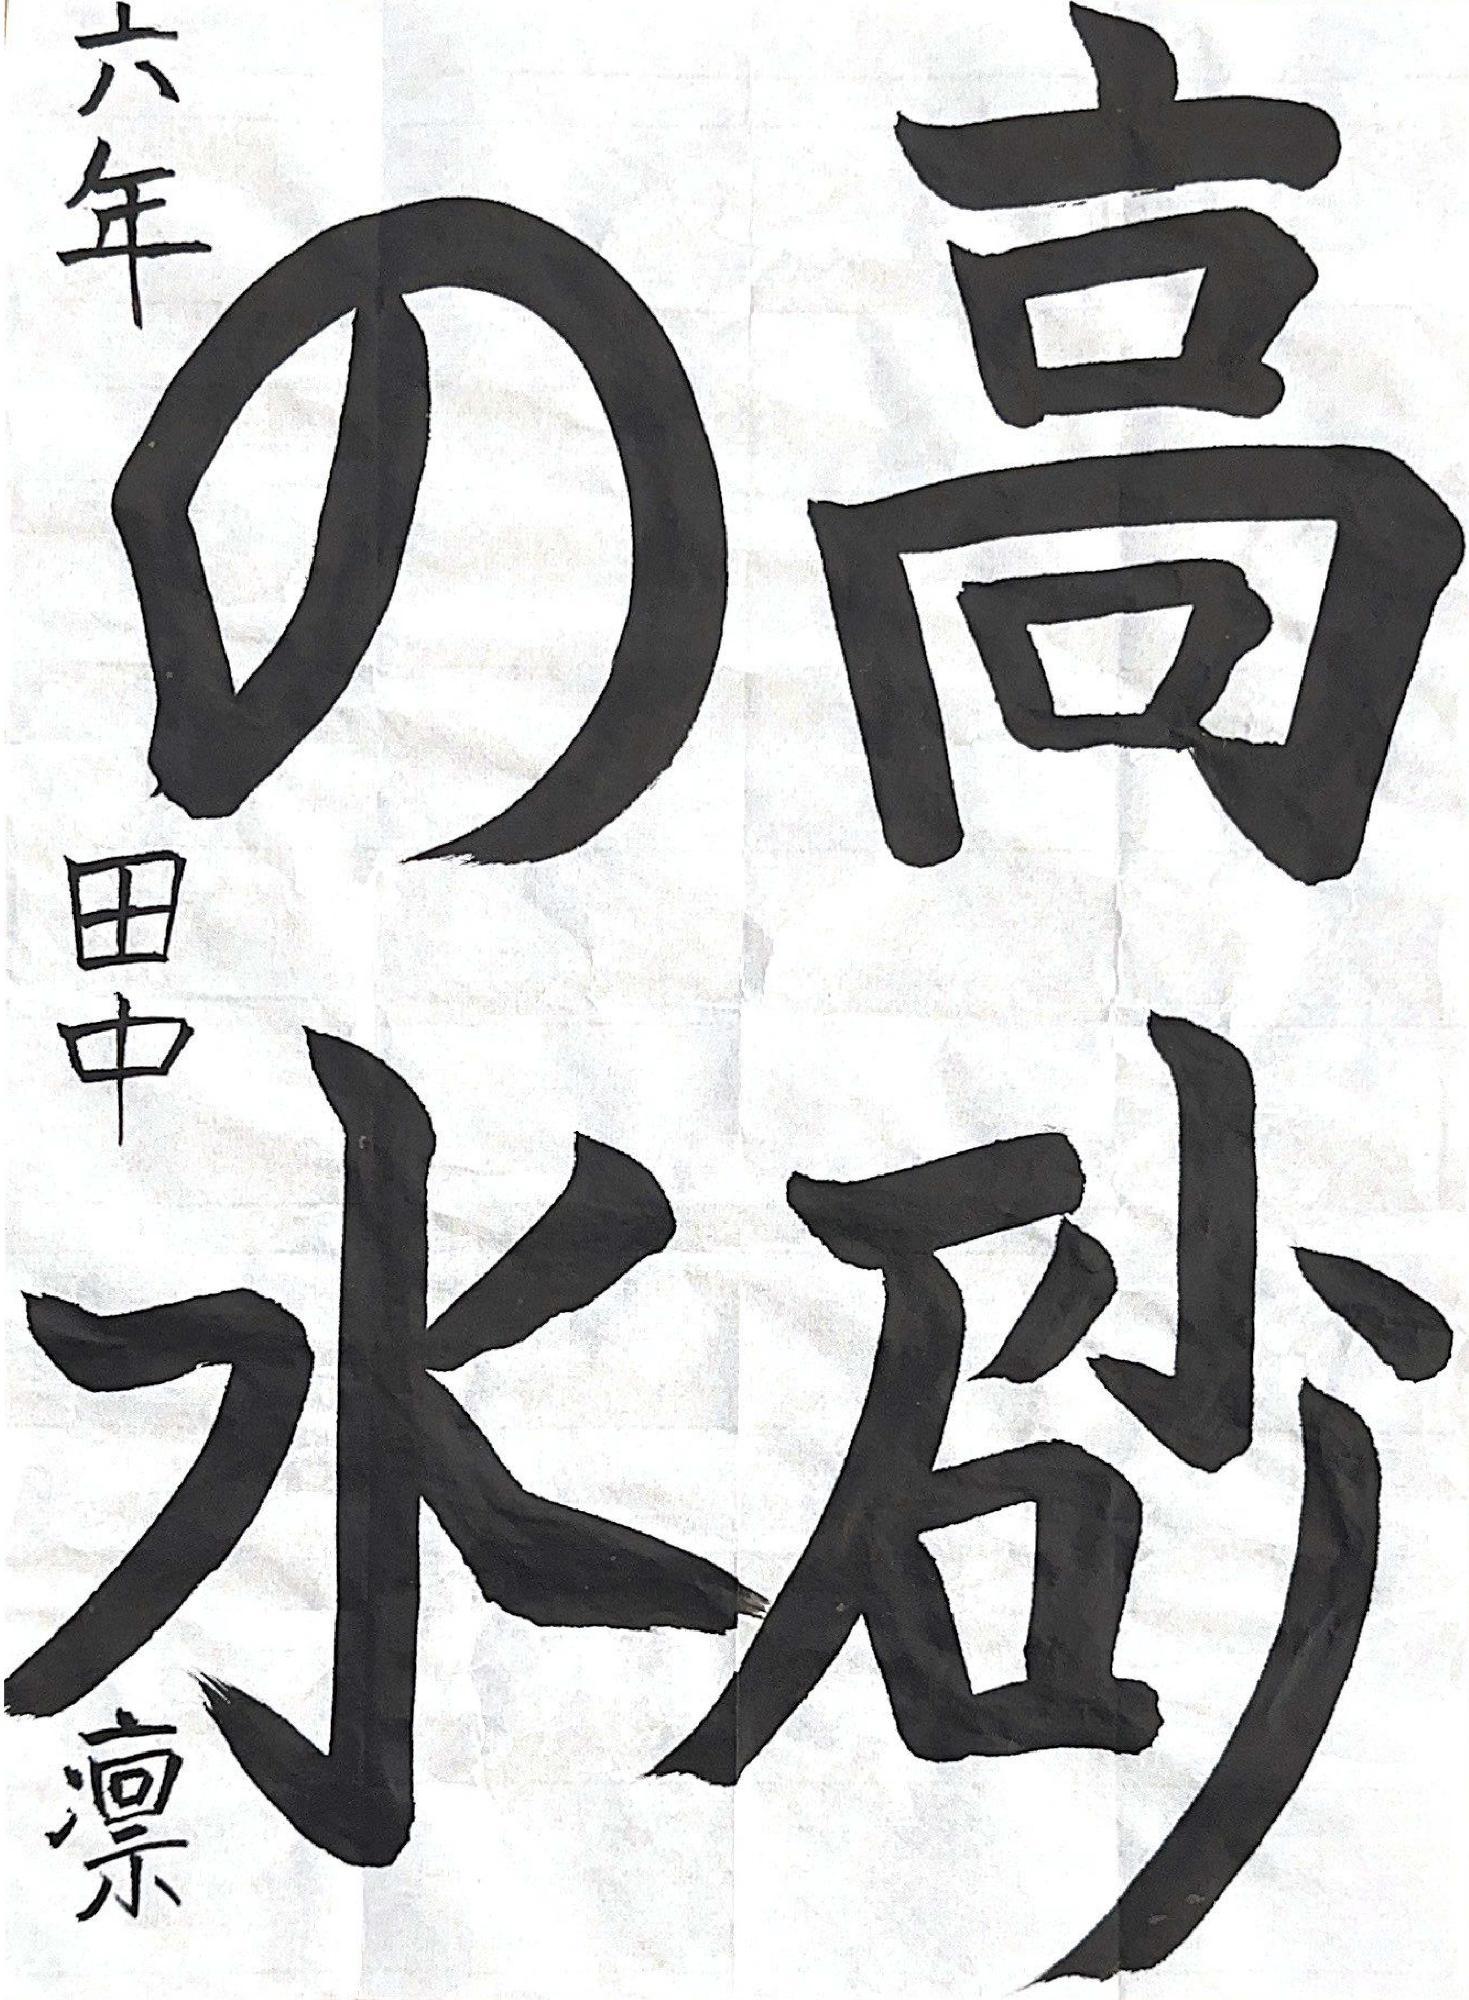 高砂
の水
六年 田中 凛